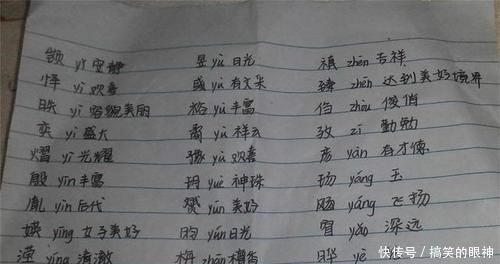 顗 yǐ 安静 昱 yù 日光 禛 zhēn 吉祥
怿 yì 欢喜 彧 yù 有文采 臻 zhēn 达到美好境界
昳 yì 容貌美丽 裕 yù 丰富 㑇 zhòu 俊俏
奕 yì 盛大 矞 yù 祥云 孜 zī 勤勉
熠 yì 光耀 豫 yù 欢喜 彦 yàn 有才德
殷 yīn 丰富 玥 yuè 神珠 玚 yáng 玉
胤 yìn 后代 赟 yūn 美好 飏 yáng 飞扬
媖 yīng 女子美好 昀 yún 日光 窅 yǎo 深远
滢 yíng 清澈 栴 zhān 檀香 晔 yè
快传号/搞笑的眼神